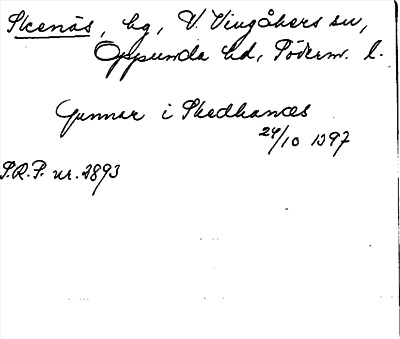 Skenäs, hg, V. Vingåkers sn,
Oppunda hd, Söderm. l.
Gunnar i Skedhanæs
24/10 1397
S.R.P. nr. 2893